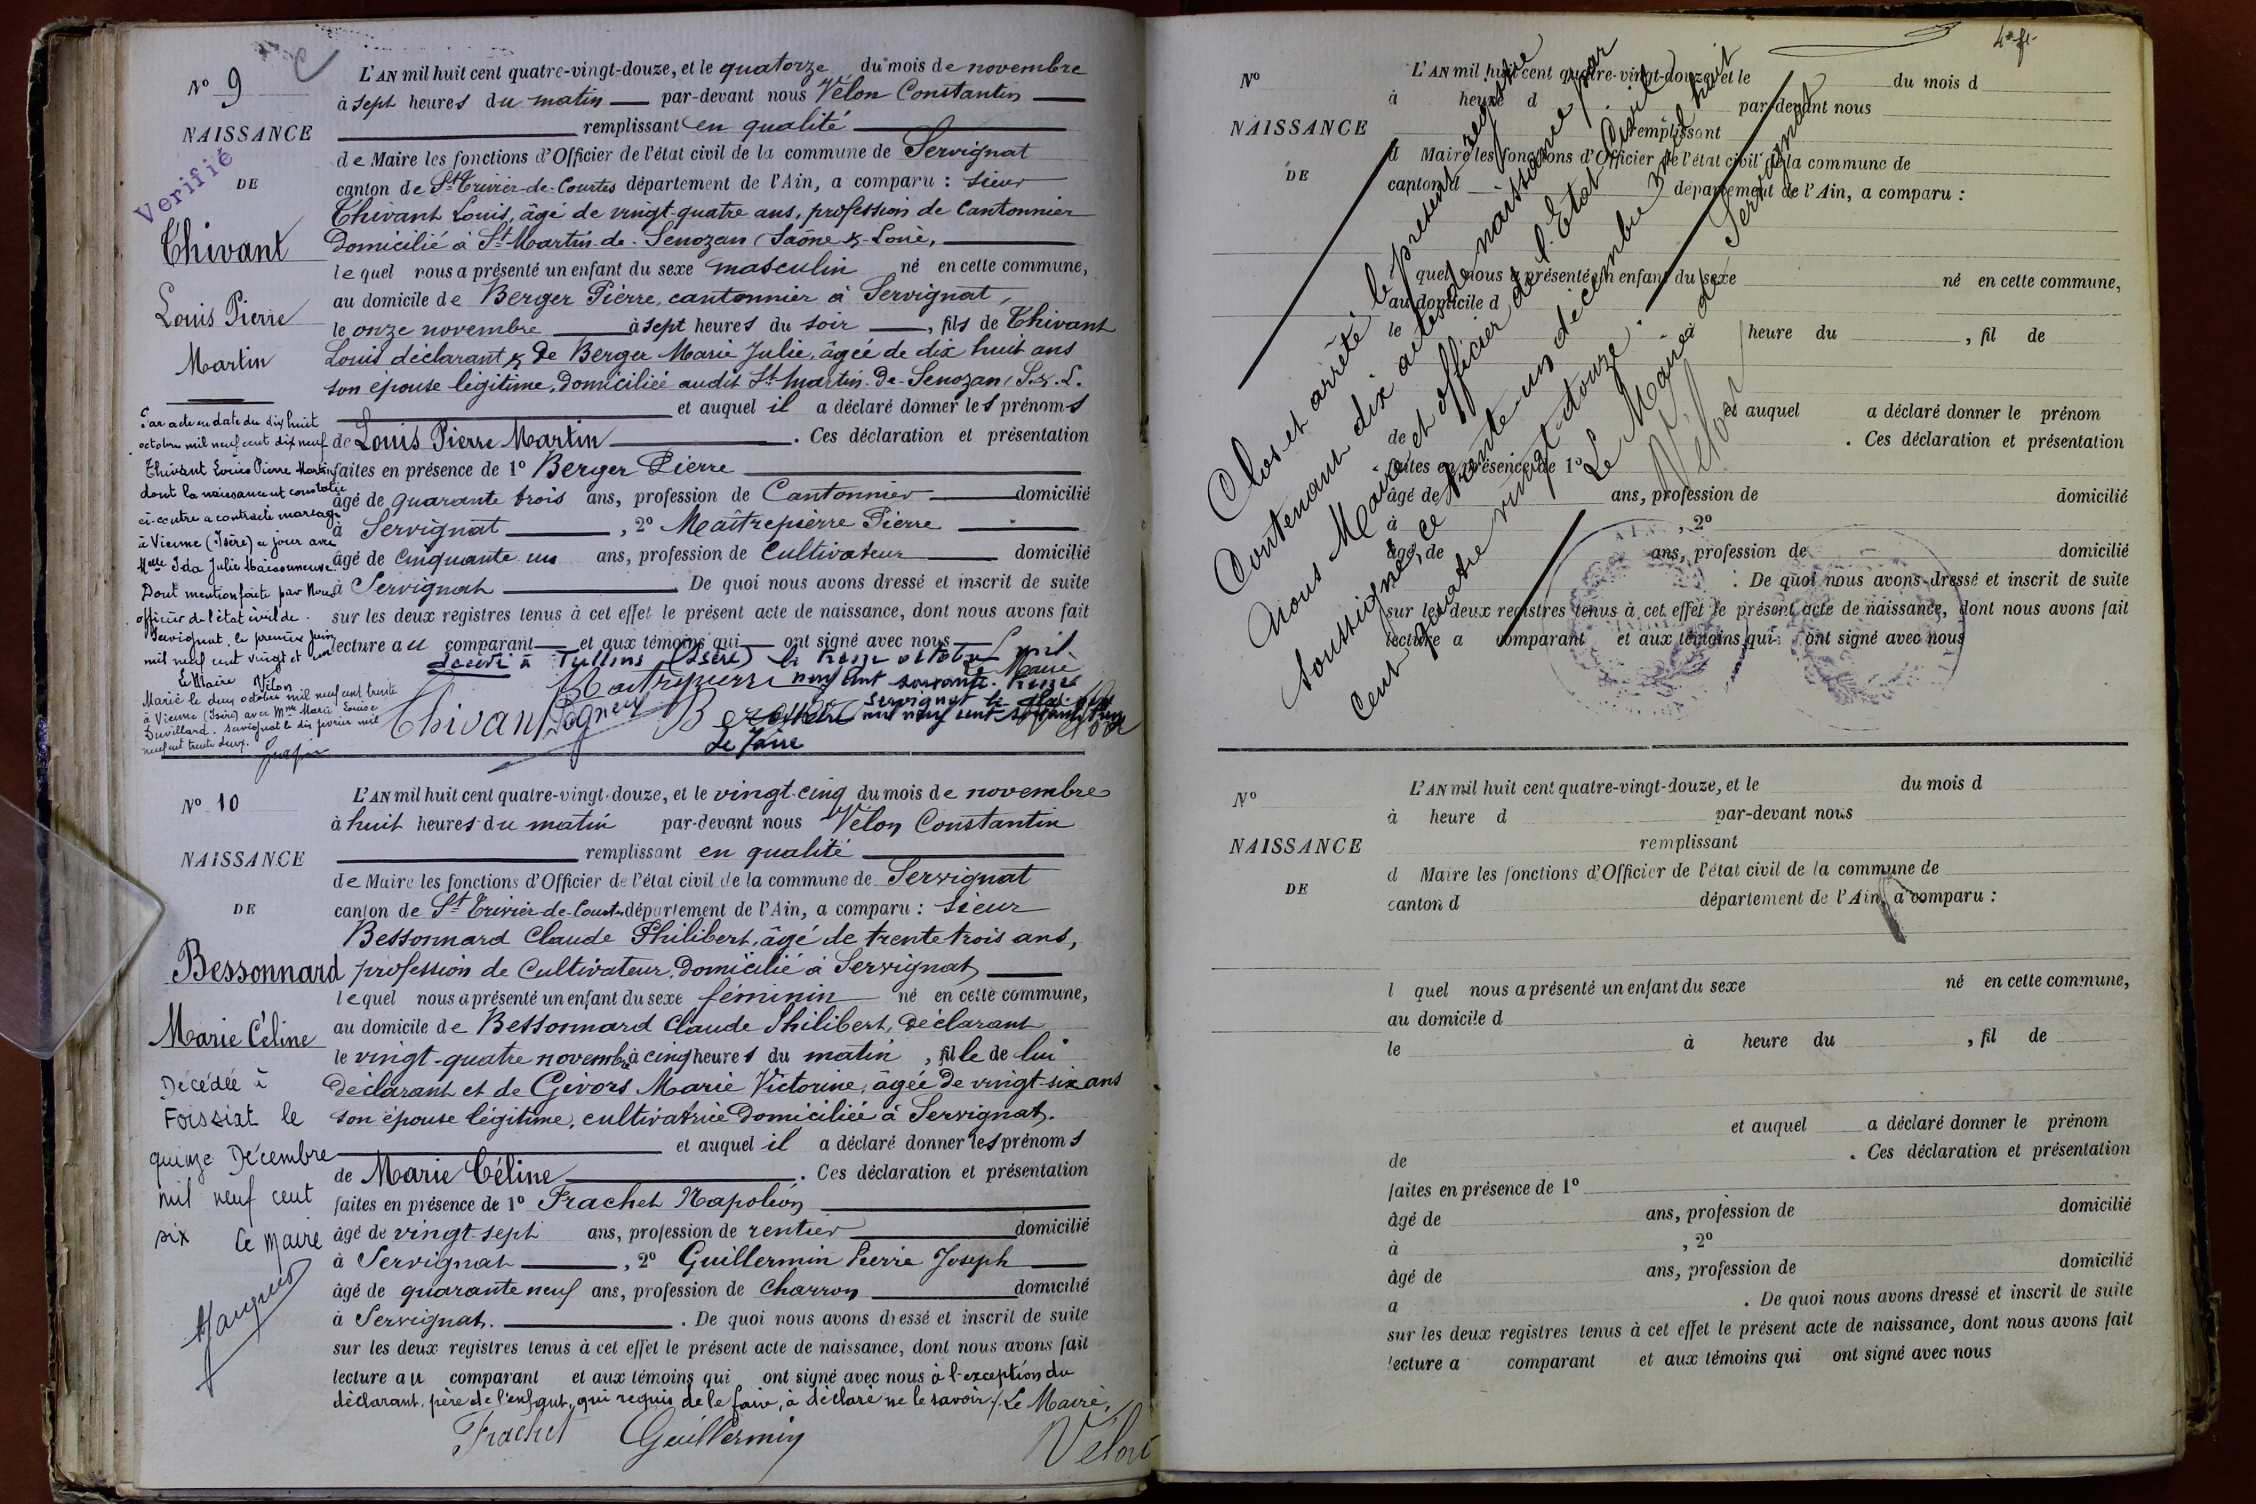 Nº 9
NAISSANCE
DE
Verifié
Thivant
Louis Pierre
Martin
Par acte en date du dix huit
octobre mil neuf cent dix neuf
Thivant Louis Pierre Martin
dont la naissance est constatée
ci-contre a contracté mariage
à Vienne (Isère) ce jour avec
Melle Ida Julie
Dont mention faite par Nous
officier de l'état civil de
Servignat, le premier juin
mil neuf cent vingt et un
Le Maire Vélon
Marié le deux octobre mil neuf cent trente
à Vienne (Isère) avec Mme Marie Louise
Duvillard. Servignat le dix février mil
neuf cent trente deux.
L'AN mil huit cent quatre-vingt-douze, et le quatorze du mois de novembre
à sept heures du matin par-devant nous Vélon Constantin
remplissant en qualité
de Maire les fonctions d'Officier de l'état civil de la commune de Servignat
canton de St Trivier-de-Courtes département de l'Ain, a comparu : sieur
Thivant Louis, âgé de vingt-quatre ans, profession de Cantonnier
domicilié à St Martin-de-Senozan (Saône & Loire,
lequel nous a présenté un enfant du sexe masculin né en cette commune,
au domicile de Berger Pierre, cantonnier à Servignat,
le onze novembre à sept heures du soir, fils de Thivant
Louis déclarant & de Berger Marie Julie, âgée de dix huit ans
son épouse légitime, domiciliée audit St Martin-de-Senozan (S.&.L.
et auquel il a déclaré donner les prénoms
de Louis Pierre Martin. Ces déclaration et présentation
faites en présence de 1º Berger Pierre
âgé de quarante trois ans, profession de Cantonnier domicilié
à Servignat, 2º Maîtrepierre Pierre
âgé de cinquante un ans, profession de Cultivateur domicilié
à Servignat. De quoi nous avons dressé et inscrit de suite
sur les deux registres tenus à cet effet le présent acte de naissance, dont nous avons fait
lecture au comparant et aux témoins qui ont signé avec nous
décédé à Tullins (Isère) le treize octobre mil
neuf cent soixante treize
Le Maire
Servignat le
mil neuf cent soixante treize
Le Maire
Maitrepierre
Thivant
Berger
Vélon
Nº 10
NAISSANCE
DE
Bessonnard
Marie Céline
Décédée à
Foissiat le
quinze Décembre
mil neuf cent
six Le Maire
L'AN mil huit cent quatre-vingt-douze, et le vingt-cinq du mois de novembre
à huit heures du matin par-devant nous Vélon Constantin
remplissant en qualité
de Maire les fonctions d'Officier de l'état civil de la commune de Servignat
canton de St Trivier-de-Courtes département de l'Ain, a comparu : sieur
Bessonnard Claude Philibert, âgé de trente trois ans,
profession de Cultivateur, domicilié à Servignat
lequel nous a présenté un enfant du sexe féminin né en cette commune,
au domicile de Bessonnard Claude Philibert, déclarant
le vingt-quatre novembre à cinq heures du matin, fille de lui
déclarant et de Givors Marie Victorine, âgée de vingt-six ans
son épouse légitime, cultivatrice domiciliée à Servignat.
et auquel il a déclaré donner les prénoms
de Marie Céline. Ces déclaration et présentation
faites en présence de 1º Frachet Napoléon
âgé de vingt-sept ans, profession de rentier domicilié
à Servignat, 2º Guillermin Pierre Joseph
âgé de quarante neuf ans, profession de charron domicilié
à Servignat. De quoi nous avons dressé et inscrit de suite
sur les deux registres tenus à cet effet le présent acte de naissance, dont nous avons fait
lecture au comparant et aux témoins qui ont signé avec nous à l'exception du
déclarant, père de l'enfant, qui requis de le faire, à déclaré ne le savoir /. Le Maire,
Frachet Guillermin Vélon
Nº
NAISSANCE
DE
L'AN mil huit cent quatre-vingt-douze, et le du mois d
à heure d par-devant nous
remplissant
d Maire les fonctions d'Officier de l'état civil de la commune de
canton d département de l'Ain, a comparu :
quel nous a présenté un enfant du sexe né en cette commune,
au domicile d
le à heure du , fil de
et auquel a déclaré donner le prénom
de . Ces déclaration et présentation
faites en présence de 1º
âgé de ans, profession de domicilié
à , 2º
âgé de ans, profession de domicilié
. De quoi nous avons dressé et inscrit de suite
sur les deux registres tenus à cet effet le présent acte de naissance, dont nous avons fait
lecture a comparant et aux témoins qui ont signé avec nous
Clos et arrêté le présent registre
Contenant dix actes de naissance par
Nous Maire et officier de l'Etat Civil
soussigné, ce trente-un décembre mil huit
cent quatre vingt douze. à Servignat
Le Maire
Vélon
AIN
Nº
NAISSANCE
DE
L'AN mil huit cent quatre-vingt-douze, et le du mois d
à heure d par-devant nous
remplissant
d Maire les fonctions d'Officier de l'état civil de la commune de
canton d département de l'Ain, a comparu :
l quel nous a présenté un enfant du sexe né en cette commune,
au domicile d
le à heure du , fil de
et auquel a déclaré donner le prénom
de . Ces déclaration et présentation
faites en présence de 1º
âgé de ans, profession de domicilié
à , 2º
âgé de ans, profession de domicilié
a . De quoi nous avons dressé et inscrit de suite
sur les deux registres tenus à cet effet le présent acte de naissance, dont nous avons fait
lecture a comparant et aux témoins qui ont signé avec nous